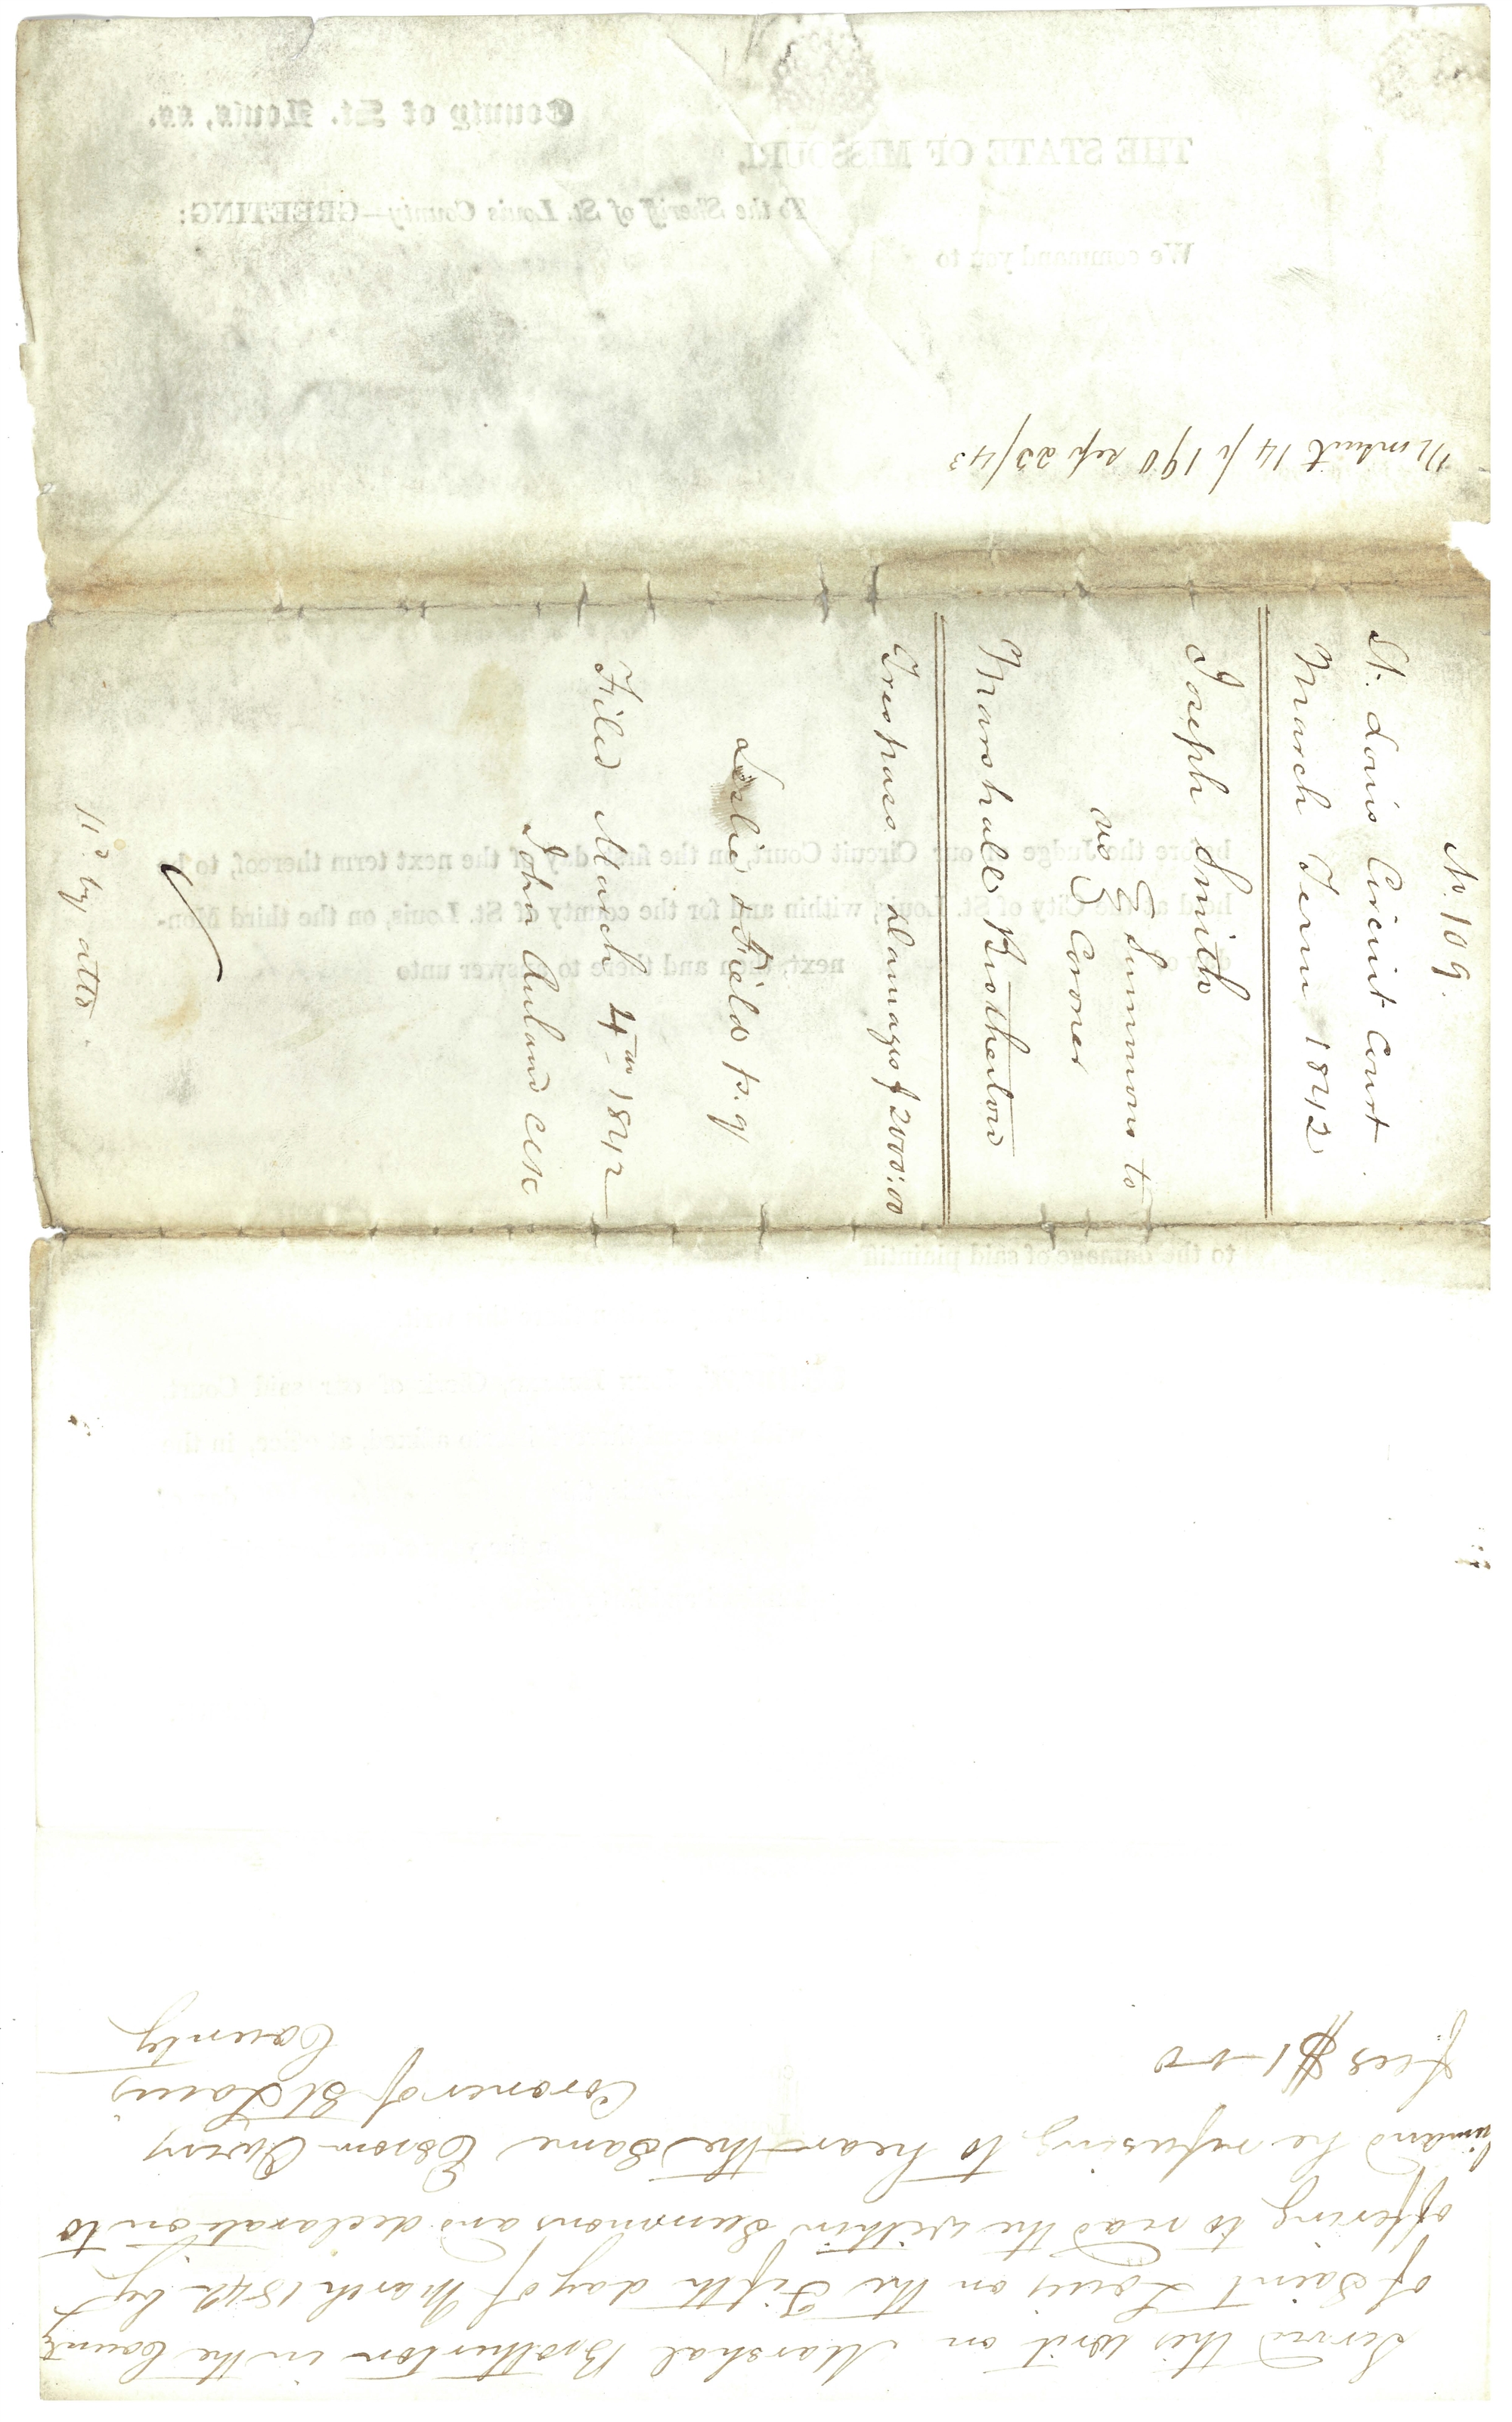 No. 109.
St. Louis Circuit Court
March Term 1842
Joseph Smith
vs } Summons to
Coroner
Marshall Brotherton
Trespass. Damages $2000:00
Leslie & Field p. q
Filed March 4th 1842
John Ruland Clk
11 by atto.
14 p 190 sep 23/43
Served this writ on Marshal Brotherton in the County
of Saint Louis on the Fifth day of March 1842 by
offering to read the within Summons and declaration to
him and he refusing to hear the Same Esrom Owens
Coroner of St Louis
County
fees $1-00
County of St. Louis, ss.
THE STATE OF MISSOURI,
To the Sheriff of St. Louis County—GREETING:
We command you to
before the Judge of our Circuit Court, on the first day of the next term thereof, to be
held at the City of St. Louis, within and for the county of St. Louis, on the third Mon-
day of next, then and there to answer unto
to the damage of said plaintiff
Clerk of our said Court,
affixed, at office, in the